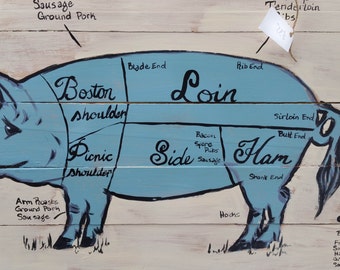 Sausage
Ground Pork
Tenderloin
Ribs
Blade End
Rib End
Boston
shoulder
Loin
Sirloin End
Picnic
shoulder
Side
Bacon
Spare
Ribs
Sausage
Ham
Butt End
Shank End
Arm Roasts
Ground Pork
Sausage
Hocks